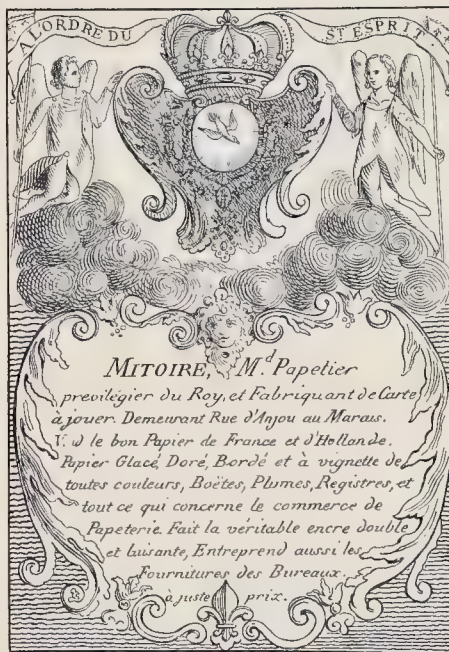 A L'ORDRE DU ST ESPRIT.
MITOIRE, M.d Papetier
previlégier du Roy, et Fabriquant de Carte
à jouer. Demeurant Rue d'Anjou au Marais.
le bon Papier de France et d'Hollande.
Papier Glacé, Doré, Bordé et à vignette de
toutes couleurs, Boëtes, Plumes, Registres, et
tout ce qui concerne le commerce de
Papeterie. Fait la véritable encre double
et luisante, Entreprend aussi les
Fournitures des Bureaux.
à juste prix.